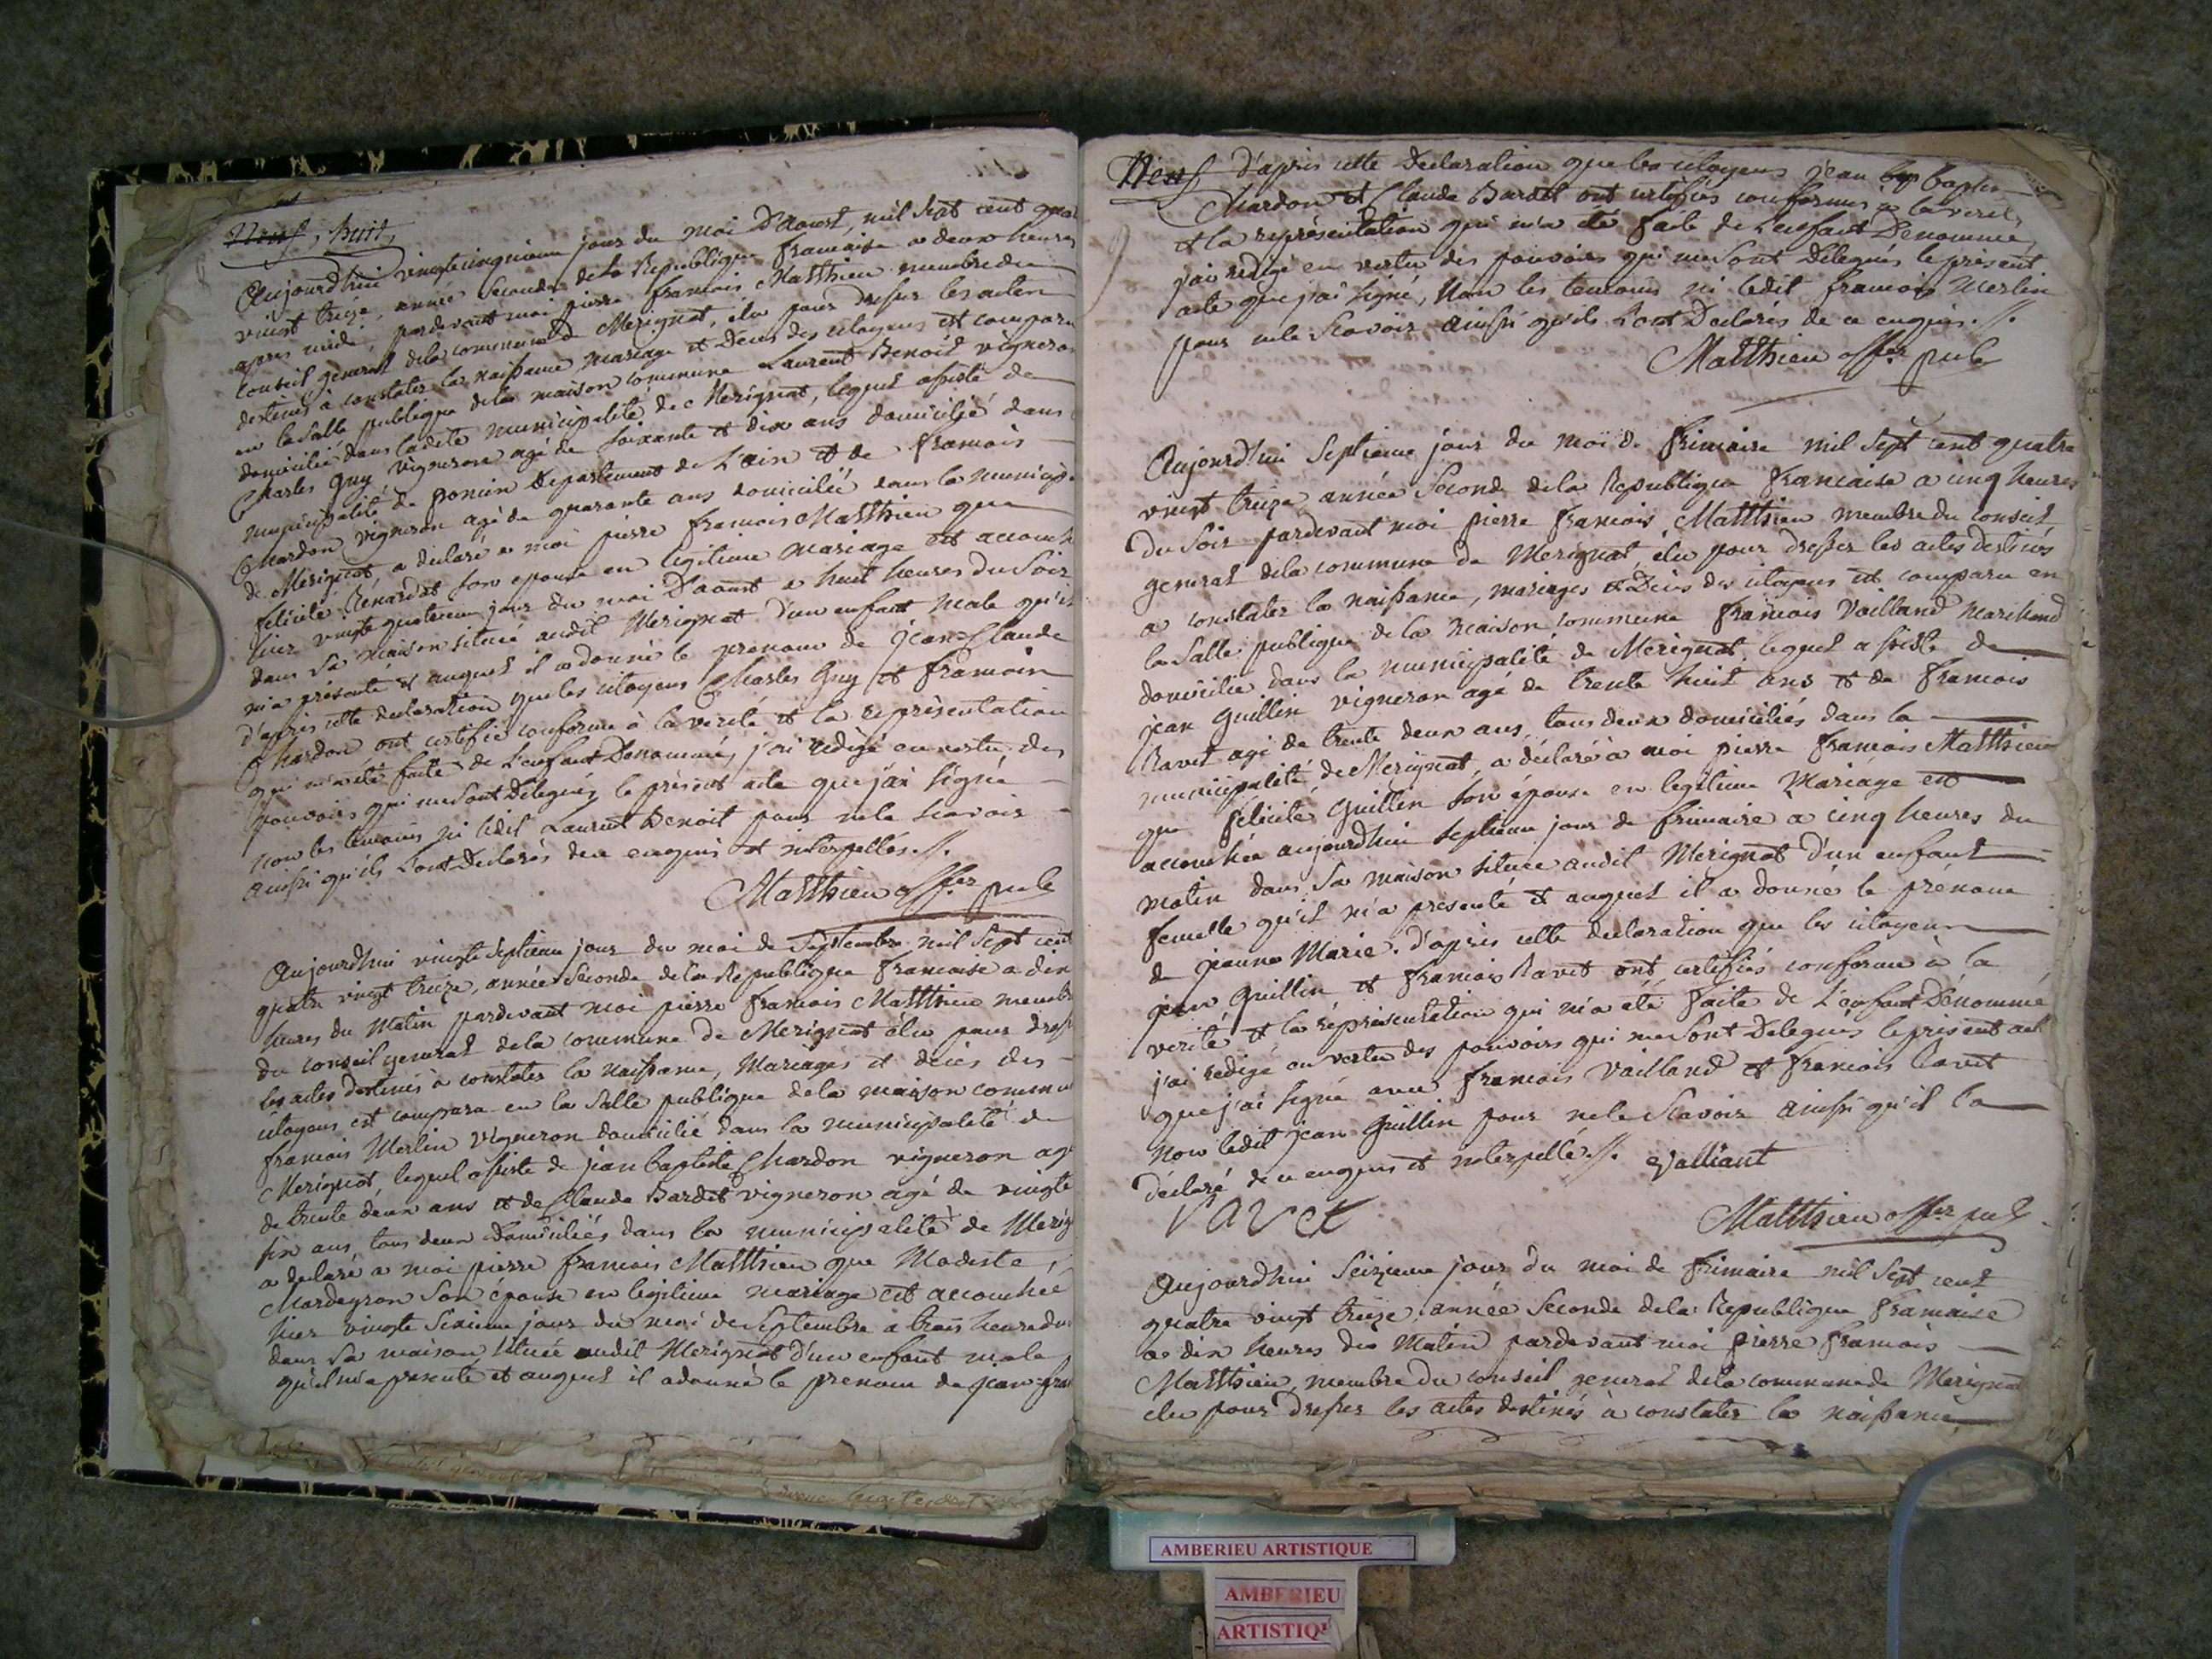 Neuf, huit,
Aujourdhui vingtecinquieme jour du moi D'Aoust, mil sept cent quat
vinst treize, année seconde dela Republique francaise a deux heures
apres midi, pardevant moi pierre francois Matthieu membre du
conseil general dela commune de Merignat, elu pour dresser les actes
destinés à constater la naissance mariage et Décès des citoyens est comparu
en la salle publique dela maison commune Laurent Benoit vigneron
domicilié dans ladite municipalité de Merignat, lequel assisté de
Charles Guy vigneron agé de soixante et dix ans domicilié dans
municipalité de poncin Departement de L'ain et de francois
Chardon vigneron agé de quarante ans domicilié dans la municip
de Merignat, a declaré a moi pierre francois Matthieu que
felicité Renardat son epouse en legitime mariage est accouch
hier vingte quatrieme jour du moi D'aoust a huit heures du Soir
dans sa maison située audit Merignat d'un enfant male qu'il
m'a présenté et auquel il a donné le prenom de jean=Claude
d'après cette declaration que les citoyens Charles Guy et francois
Chardon ont certifié conforme à la verité et la représentation
qui m'a été faite de L'enfant Denommé, j'ai redigé en vertu des
pouvoirs qui me sont Delegués le présent acte que j'ai signé
non les temoins ni ledit Laurent Benoit pour ne le scavoir
ainsi qu'ils L'ont Declarés de ce enquis et interpellés./.
Matthieu offer publ
Aujourdhui vingte septieme jour du moi de Septembre mil Sept cent
quatre vingt treize, année Seconde dela Republique francaise a dix
heures du Matin pardevant moi pierre francois Matthieu membre
du conseil general dela commune de Merignat élu pour dress
les actes destinés à constater la naissance, Mariages et décès des
citoyens est comparu en la Salle publique dela maison commu
francois Merlin vigneron domicilié dans la municipalité de
Merignat lequel assisté de jean baptiste Chardon vigneron ag
de trente deux ans et de Claude Bardet vigneron agé de vingte
six ans, tous deux Domiciliés dans la municipalité de Merig
a declaré a moi pierre francois Matthieu que Modeste,
Mardeyron Son épouse en legitime mariage est accouchée
hier vingte Sixieme jour du moi de Septembre a trois heure du
dans sa maison Située audit Merignat d'un enfant male
qu'il m'a présenté et auquel il a donné le prenom de jean-fran
Neuf d'après cette Declaration que les citoyens jean baptiste
Chardon et Claude Bardet ont certifiés conformes à la verité,
et la représentation qui m'a été faite de L'enfant Denommé,
j'ai redigé en vertu des pouvoirs qui me sont Delegués le présent
acte que j'ai signé, Non les temoins ni ledit francois Merlin
pour ne le Scavoir ainsi qu'ils L'ont Declarés de ce enquis./.
Matthieu offer publ
Aujourd'hui Septieme jour du moi de frimaire mil Sept cent quatre
vinst treize année Seconde dela Republique francaise a cinq heures
du Soir pardevant moi pierre francois Matthieu membre du conseil
general dela commune de Merignat, élu pour dresser les actes destinés
a constater la naissance, mariages et Décès des citoyens est comparu en
la Salle publique de la maison commune francois Vailland marchand
domicilié dans la municipalité de Merignat lequel assisté de
jean Guillin vigneron agé de trente huit ans et de francois
Ravet agé de trente deux ans, tous deux domiciliés dans la
municipalité de Merignat, a déclaré à moi pierre francois Matthieu
que felicité Guillin son épouse en legitime Mariage est
accouchée aujourdhui septieme jour de frimaire à cinq heures du
matin dans Sa maison située audit Merignat d'un enfant
femelle qu'il m'a presenté et auquel il a donné le prénom
de jeanne Marie. d'après cette declaration que les citoyens
jean Guillin et francois Ravet ont certifiés conforme à la
verité et la représentation qui m'a été faite de L'enfant Dénommé
j'ai redigé en vertu des pouvoirs qui me Sont Delegués le présent act
que j'ai signé avec francois Vailland et francois Ravet
Non ledit jean Guillin pour ne le Scavoir ainsi qu'il la
déclaré de ce enquis et interpellé./. Valliant
ravet
Matthieu offer publ
Aujourdhui Seizieme jour du moi de frimaire mil Sept cent
quatre vingt treize, année Seconde dela Republique francaise
a dix heures du Matin pardevant moi pierre francois
Matthieu, membre du conseil general dela commune de Merignat
elu pour dresser les actes destinés à constater la naissance
AMBERIEU ARTISTIQUE
AMBERIEU
ARTISTIQ